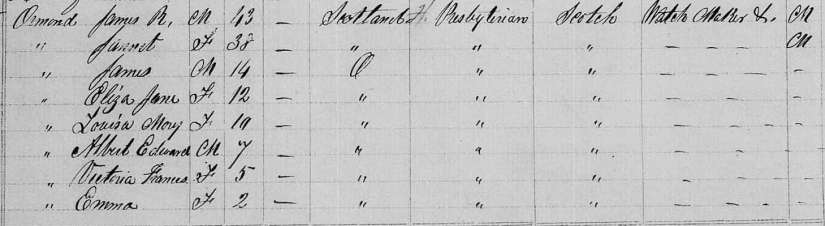 Ormond James R. M 43 — Scotland Presbyterian Scotch Watch Maker &. M
" Jannet F 38 — " " " M
" James M 14 — O " " — — — —
" Eliza Jane F 12 — " " " — — — —
" Louisa Mary F 10 — " " " — — — —
" Albert Edward M 7 — " " " — — — —
" Victoria Frances F 5 — " " " — — — —
" Emma F 2 — " " " — — — —